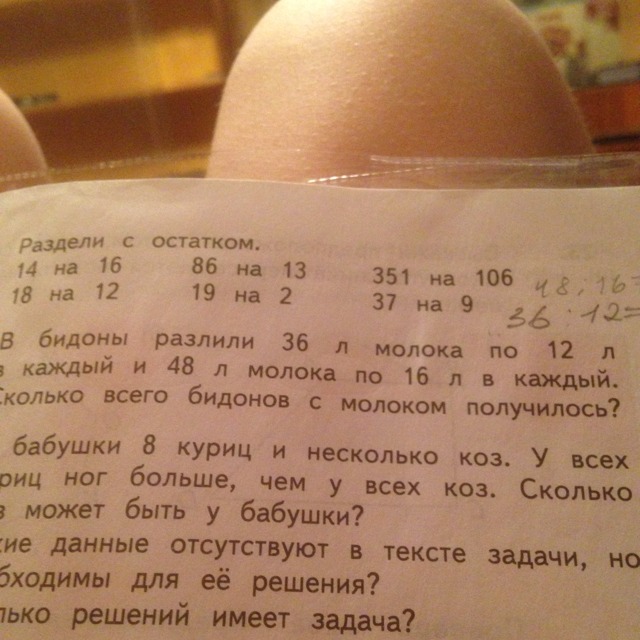 Раздели с остатком.
14 на 16 86 на 13 351 на 106 48 : 16 =
18 на 12 19 на 2 37 на 9 36 : 12 =
В бидоны разлили 36 л молока по 12 л
каждый и 48 л молока по 16 л в каждый.
Сколько всего бидонов с молоком получилось?
бабушки 8 куриц и несколько коз. У всех
риц ног больше, чем у всех коз. Сколько
з может быть у бабушки?
кие данные отсутствуют в тексте задачи, но
бходимы для её решения?
лько решений имеет задача?